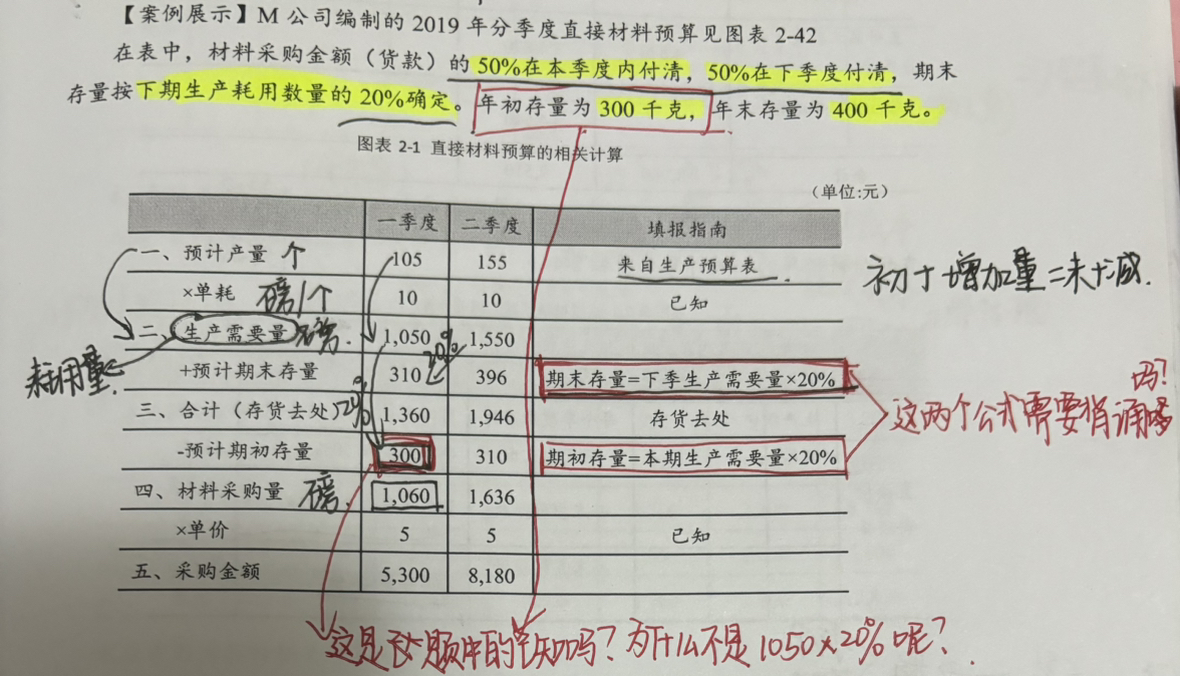 【案例展示】M 公司编制的 2019 年分季度直接材料预算见图表 2-42
在表中，材料采购金额（货款）的 50%在本季度内付清，50%在下季度付清，期末
存量按下期生产耗用数量的 20%确定。年初存量为 300 千克，年末存量为 400 千克。
图表 2-1 直接材料预算的相关计算
（单位:元）
一季度 二季度 填报指南
一、预计产量 个 105 155 来自生产预算表
×单耗 磅/个 10 10 已知
初+增加量=末+减
二、生产需要量 磅 1,050 1,550
20%
耗用量
+预计期末存量 310 396 期末存量=下季生产需要量×20%
吗?
三、合计（存货去处） 20% 1,360 1,946 存货去处
这两个公式需要背诵
-预计期初存量 300 310 期初存量=本期生产需要量×20%
四、材料采购量 磅 1,060 1,636
×单价 5 5 已知
五、采购金额 5,300 8,180
这是 题中的已知吗? 为什么不是1050×20%呢?